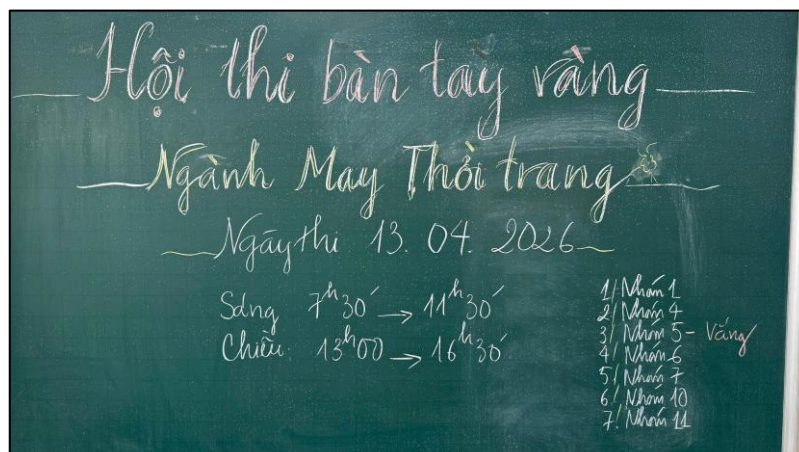 Hội thi bàn tay vàng
Ngành May Thời trang
Ngày thi 13. 04. 2026
Sáng 7h30' → 11h30'
Chiều: 13h00 → 16h30'
1/ Nhóm 1
2/ Nhóm 4
3/ Nhóm 5 - Vắng
4/ Nhóm 6
5/ Nhóm 7
6/ Nhóm 10
7/ Nhóm 11